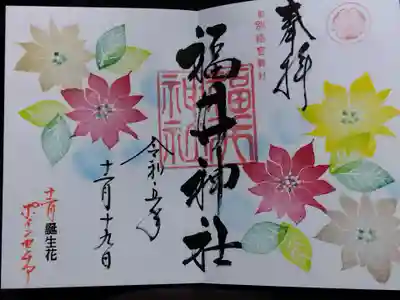 奉拝
福井神社
福井
神社
令和五年
十二月十九日
十二月
誕生花
ポインセチア